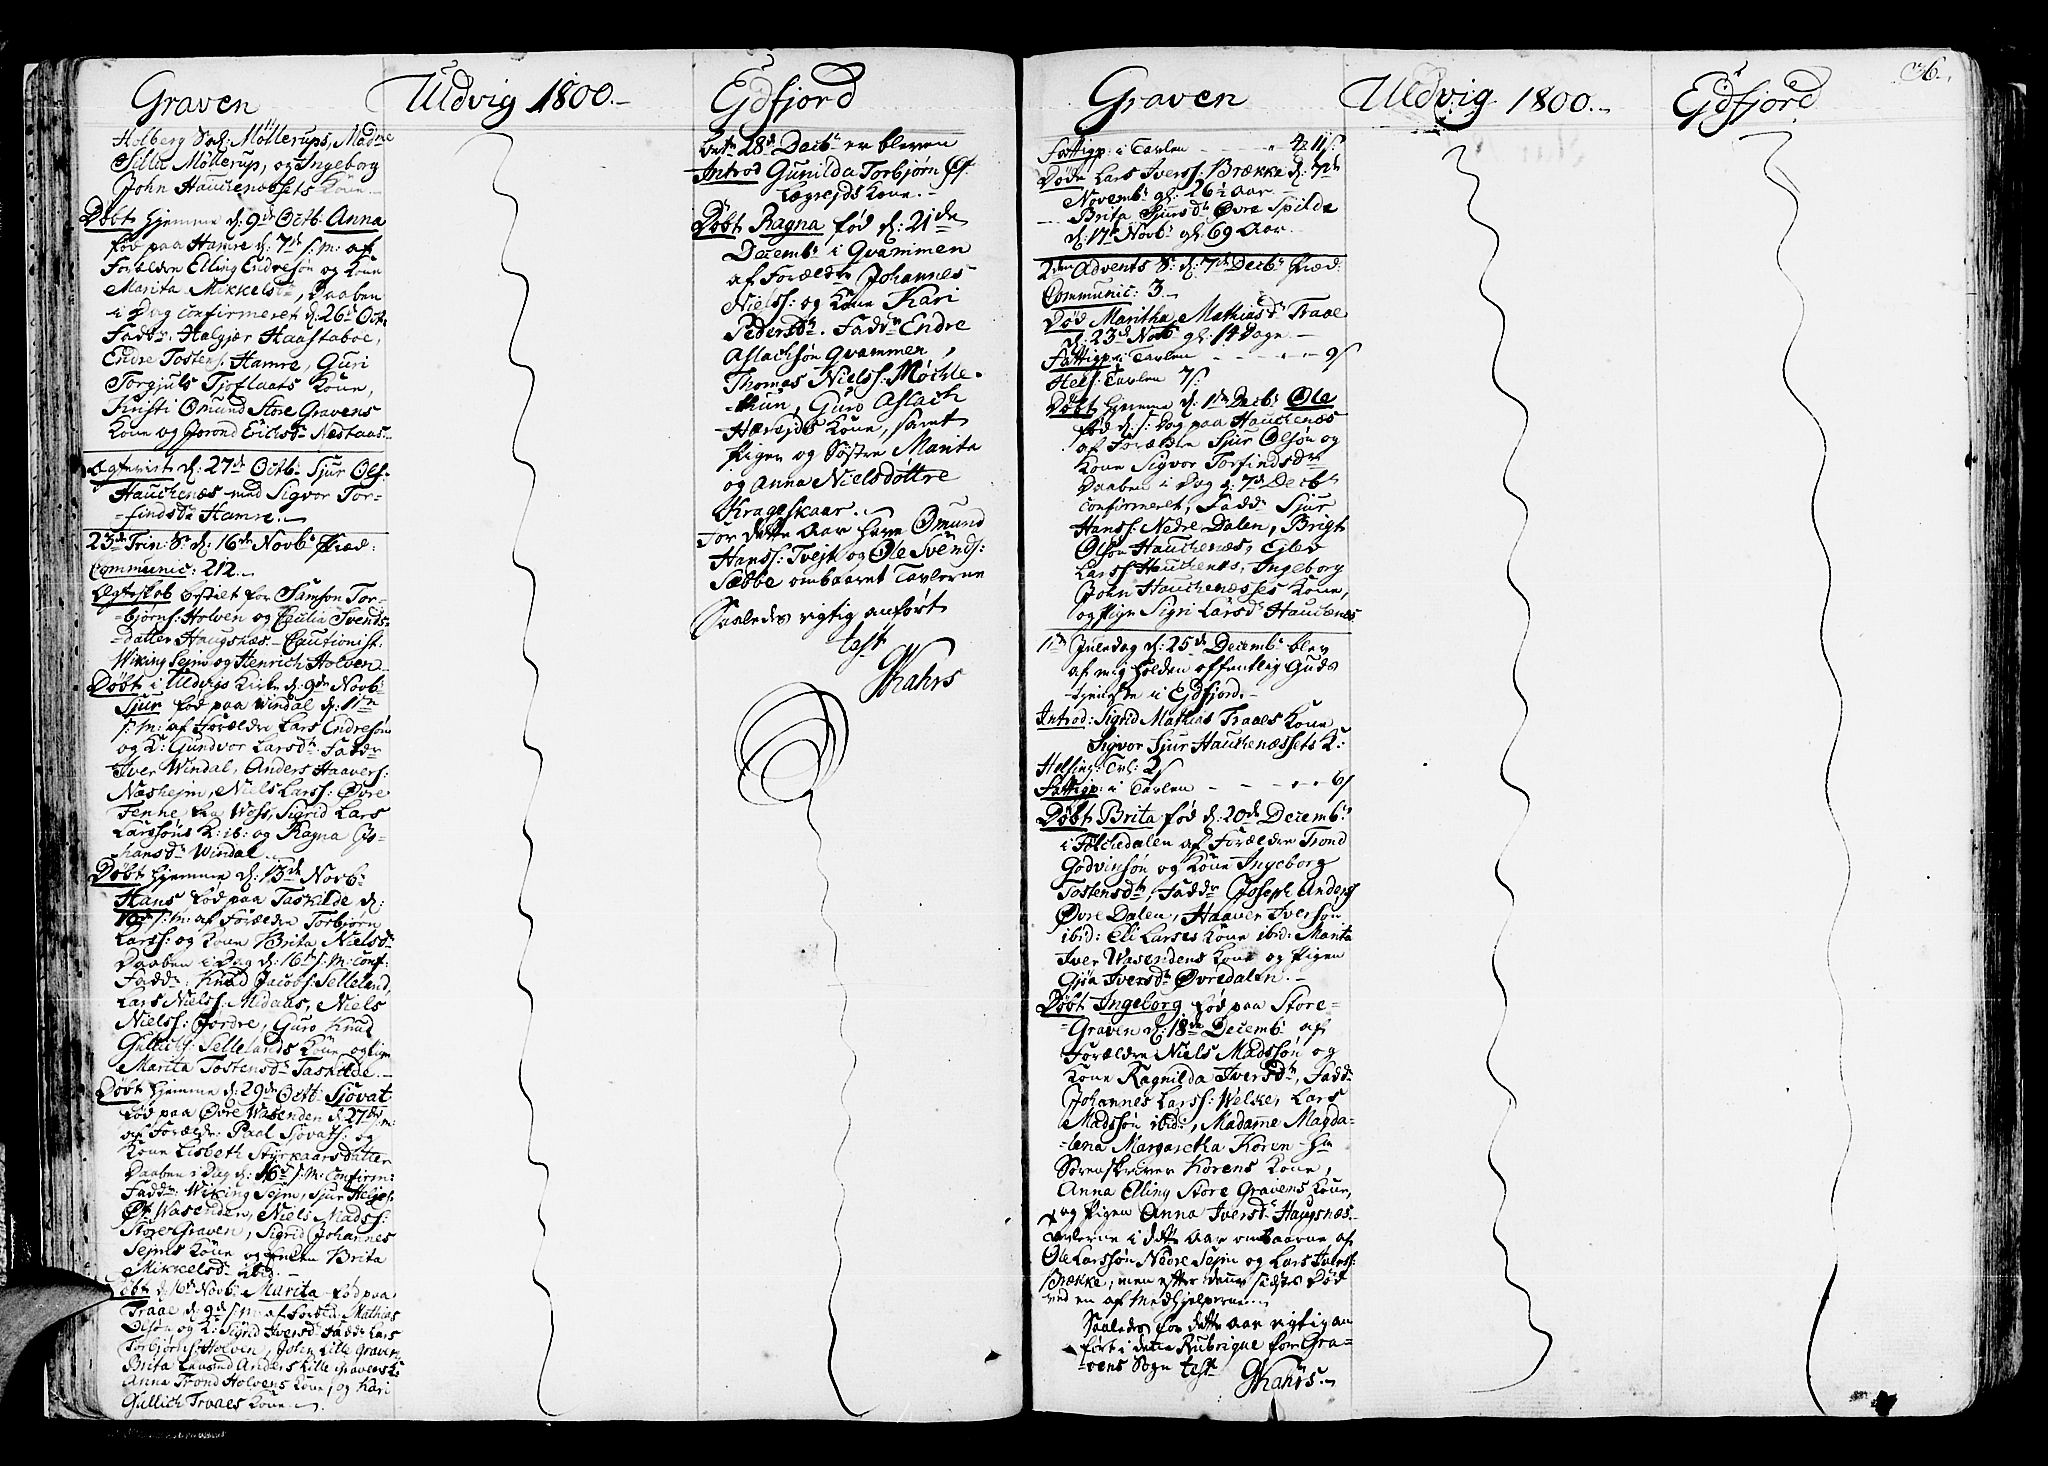 Graven
Holberg Sal: Möllerups, Madme
Silla Möllerup, og Ingeborg
John Hauckenæsets Kone.
Døbt hjemme d: 9de Octb: Anna
fød paa Hamre d: 7de s: m: af
Forældre Elling Endresøn og Kone
Marita Mikkelsdr, Daaben
i Dag confirmeret d: 26de Octb
Faddr: Helgjer Haastaboe,
Endre Tostens: Hamre, Guri
Torgjuls Tjoflaats Kone,
Kristi Omund Store Gravens
Kone og Jorond Erichsdr Nestaas.
Ægteviet d: 27de Octb: Sjur Ols:
Hauckenæs med Sigvor Tor=
=findsdr Hamre.
23de Trin: S: d: 16de Novb: Præd:
Communic: 212.
Ægteskab bestilt for Samson Tor-
=bjørns: Holven og Cecilia Svends-
Datter Haugsnes. Cautionist:
Wiking Sejm og Henrich Holven
Døbt i Uldvigs Kirke d: 9de Novb:
Sjur fød paa Windal d: 1ste
s: m: af Forældre Lars Endresøn
og K: Gundvor Larsdr Faddr
Iver Windal, Anders Haavers:
Næshejm, Niels Larss: Øvre
Tenne fra Woss, Sigrid Lars
Larssøns K: ib: og Ragna Jo-
hansdr Windal.
Døbt hjemme d: 13de Novb:
Hans fød paa Taskilde d:
s: m: af Forældre Torbjørn
Larss: og Kone Brita Nielsdr
Daaben i Dag d: 16de s: m: conf:
Faddr: Knud Jacobs: Selleland,
Lars Niels: Midaas, Niels
Niels: Jordre, Guro Knud
Gullichs: Sellelands Kone og Pigen
Marita Tostensdr Taskilde.
Døbt hjemme d: 29de Octb: Sjovat
fød paa Øvre Wasenden d: 27de s: m:
af Forældr: Paal Sjovats: og
Kone Lisbeth Styrkaarsdatter
Daaben i Dag d: 16de s: m: confirm:
Faddr: Wiking Sejm, Sjur Heljes:
Øv: Wasenden, Niels Madss:
Store Graven, Sigrid Johannes
Sejms Kone og Enken Brita
Mikkelsdr ibid.
Døbt d: 16de Novb: Marita fød paa
Traae d: 9de s: m: af Foreld: Mathias
Olsøn og K: Sigrid Iversdr Faddr Lars
Torbjørns: Holven, John Lille Graven,
Brita Anders Lille Gravens K:
Anna Trond Holvens Kone, og Kari
Gullich Traaes Kone.
Uldvig 1800.
Ejdfjord
28de Decb: er bleven
Introd Gunilda Torbjørn
Lægrejds Kone.
Døbt Ragna fød d: 21de
Decemb: i Qvammen
af Forældr Johannes
Niels: og Kone Kari
Pedersdr. Faddr Endre
Aslachsøn Qvammen,
Thomas Niels: Møckle=
=thun, Guro Aslach
Hæreids Kone, samt
Pigen og Søstre Marita
og Anna Nielsdøttre
Krageskaar.
For dette Aar have Omund
Hanss: Tvejt og Ole Svends:
Sæbbe ombaaret Tavlerne
Saaledes rigtig anført
test
JKahrs
Graven
Fattigp: i Tavlen - - - 4 11 s:
Døde Lars Iverss: Brække d: 7de
Novemb: gl: 26½ Aar
Brita Sjursdr Øvre Spilde
d: 17de Novb: gl: 69 Aar.
2den Advents S: d: 7de Decb: Præd:
Communic: 3.
Død Maritha Mathiasdr Traae
d: 23de Novb: gl: 14 Dage.
Fattigp: i Tavlen - - - 9 s
Hels: Tavlen 7 s:
Døbt hjemme d: 1ste Decb: Ole
fød d: s: Dag paa Hauckenæs
af Forældre Sjur Olsøn og
Kone Sigvor Torfindsdr
Daaben i Dag d: 7de Decbr
confirmeret, Faddr Sjur
Hanss: Nedre Dalen, Brigt
Olsøn Hauckenæs, Ejlev
Larss: Hauckenæs, Ingeborg
John Hauckenæsses Kone,
og Pige Sigri Larsdr Hauckenæs
1ste Juledag d: 25de Decemb: blev
af mig holden offentlig Guds
tjeneste i Ejdfjord.
Introd: Sigrid Mathias Traaes Kone
Sigvor Sjur Hauckenæssets K:
Helsing: Tvl: 2 s
Fattigp: i Tavlen - - - 6 s
Døbt Brita fød d: 20de Decemb:
i Folckedalen af Forældre Trond
Godvinsøn og Kone Ingeborg
Tostensdr, Faddr Joseph Anders:
Øvre Dalen, Haaver Iversøn
ibid: Eli Larses Kone ibid: Marita
Iver Wasendens Kone og Pigen
Gjøa Iversdr Øvredalen.
Døbt Ingeborg fød paa Store=
=Graven d: 18de Decemb: af
Forældre Niels Madssøn og
Kone Ragnilda Iversdr, Faddr
Johannes Larss: Welke, Lars
Madssøn ibid:, Madame Magda=
=lena Margaretha Koren Hr
Sorenskriver Korens Kone,
Anna Elling Store Gravens Kone,
og Pigen Anna Iversdr Haugsnæs.
Tavlerne i dette Aar ombaarne af
Ole Larssøn Nedre Sejm og Lars Iverss:
Brække, men efter denne sidstes Død
ved en af Medhjelperne.
Saaledes for dette Aar rigtig an
ført i dette Rubrique for Gra=
=vens Sogn test
JKahrs.
Uldvig 1800.
Ejdfjord
36.